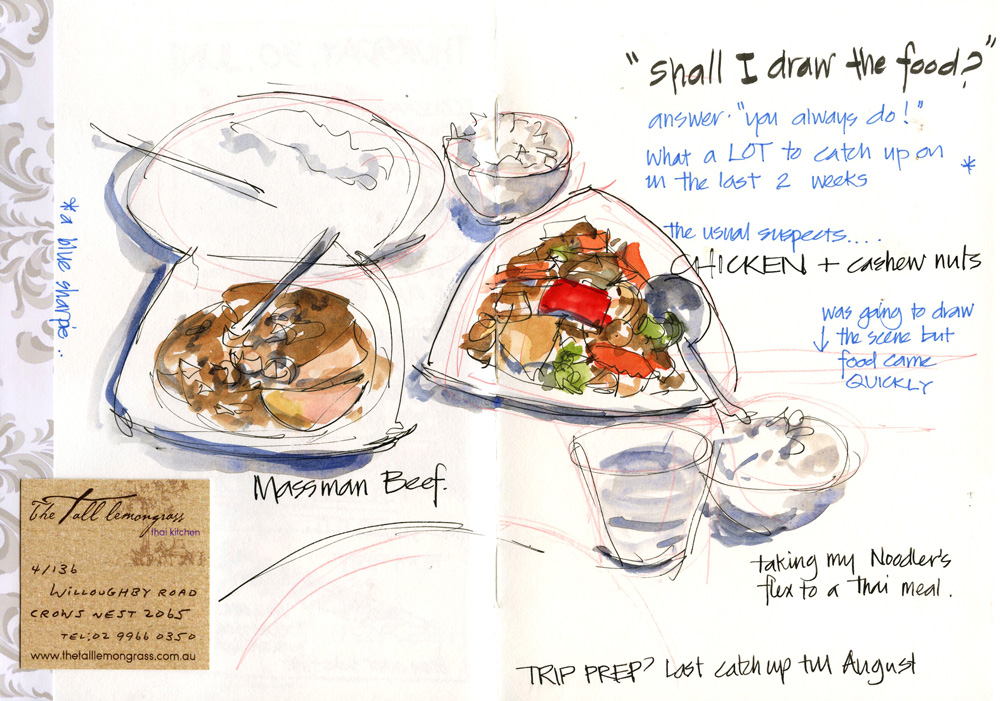 "shall I draw the food?"
answer. "you always do!"
what a LOT to catch up on *
in the last 2 weeks
the usual suspects....
CHICKEN + cashew nuts
was going to draw
the scene but
food came
QUICKLY
*a blue sharpie..
Massman Beef.
The Tall lemongrass
thai kitchen
4/136
WILLOUGHBY ROAD
CROWS NEST 2065
TEL:02 9966 0350
www.thetalllemongrass.com.au
taking my Noodler's
flex to a Thai meal.
TRIP PREP? Last catch up till August